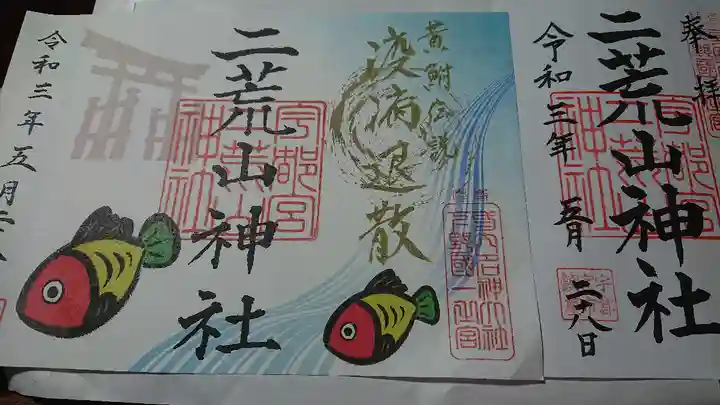 奉拝
二荒山神社
宇都宮
二荒山
神社
令和三年 五月 二十八日
黄鮒伝説
疫病退散
名神大社
下野國一之宮
二荒山神社
宇都宮
二荒山
神社
令和三年五月二十八